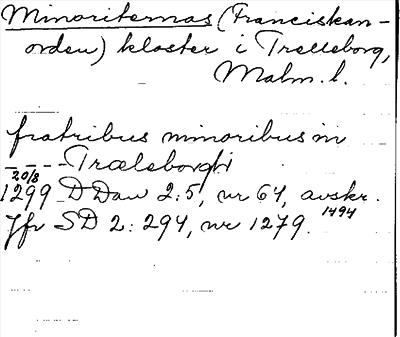 Minoriternas (Franciskan-
orden) kloster i Trelleborg,
Malm. l.
fratribus minoribus in
- - - Trælsborgh
20/8
1299 D Dan 2:5, nr 64, avskr.
1494
Jfr SD 2: 294, nr 1279.